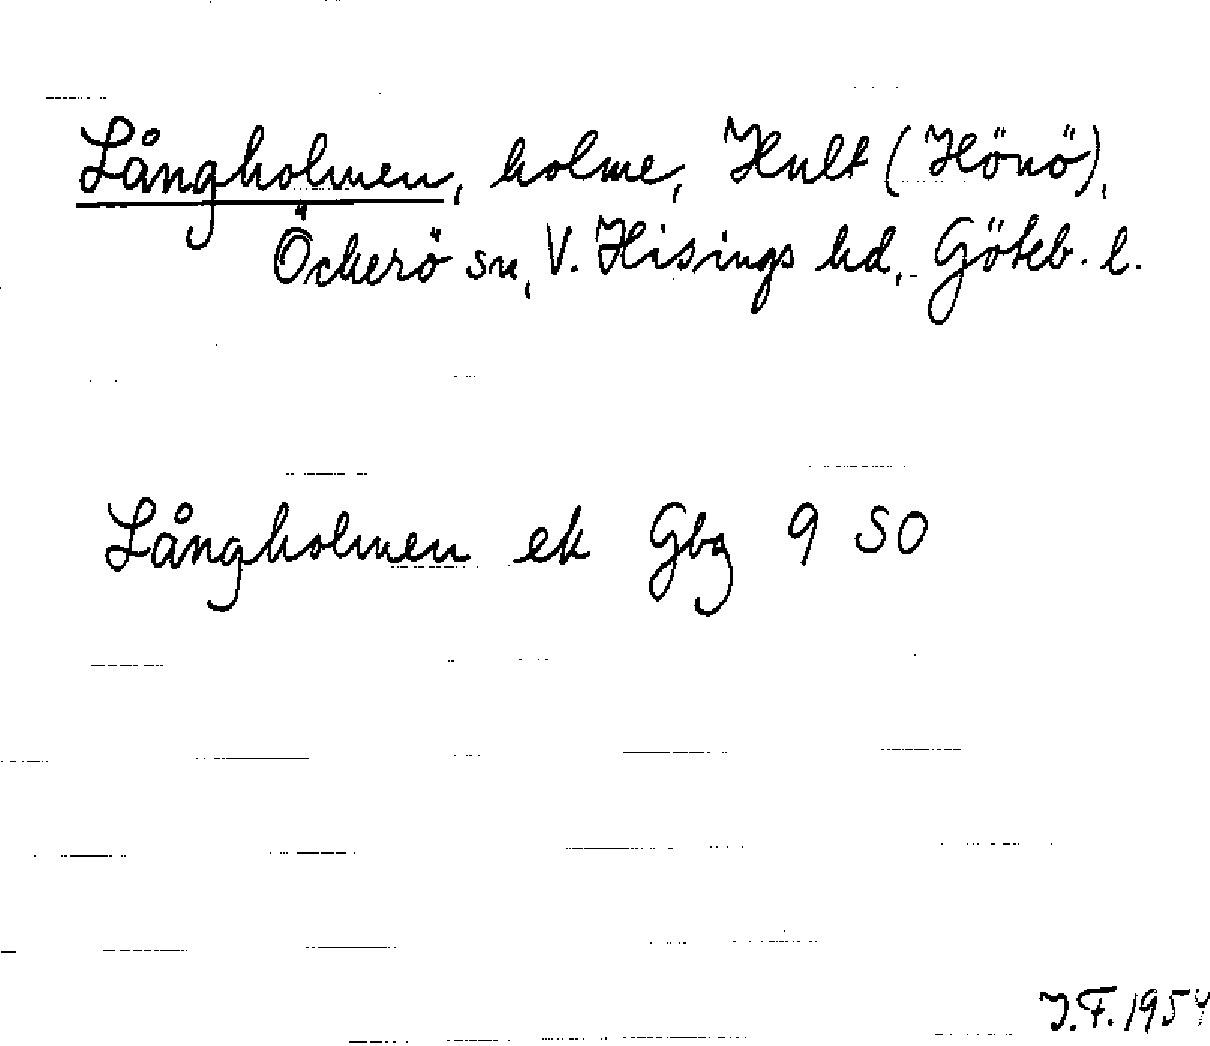 Långholmen, holme, Hult (Hönö),
Öckerö sn, V. Hisings hd, Göteb. l.
Långholmen ek Gbg 9 SO
J.F. 1954